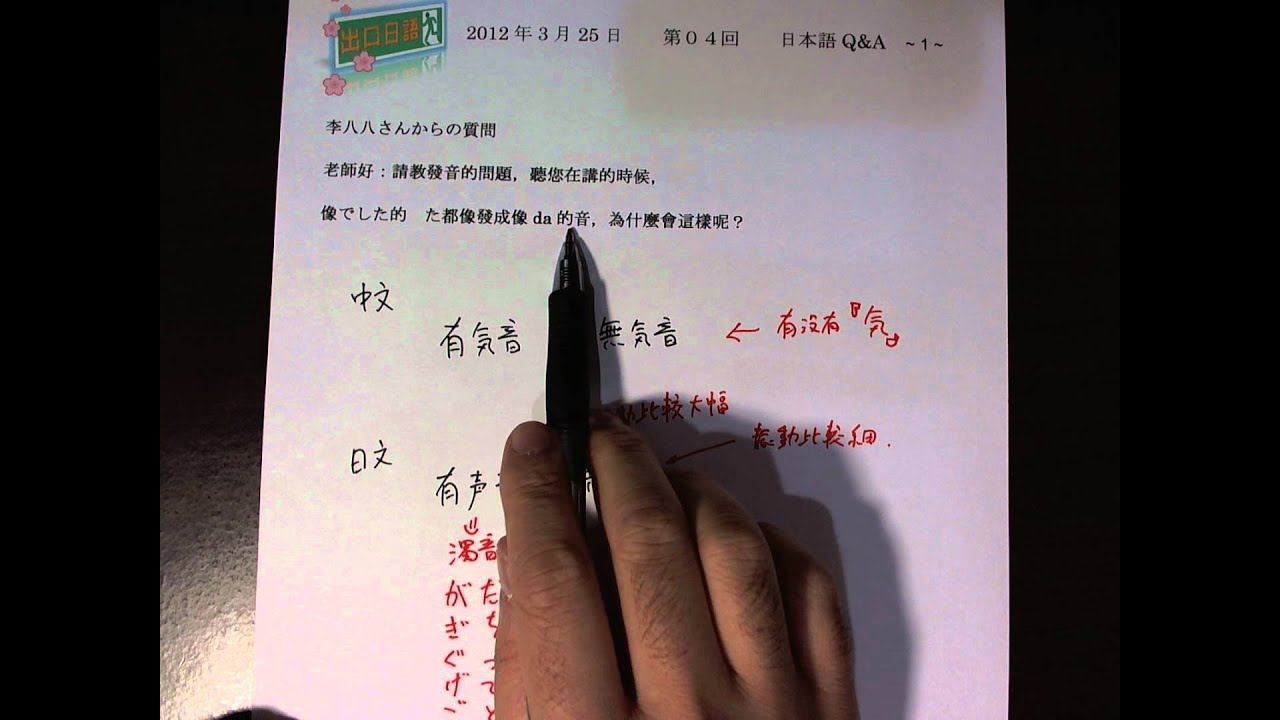 出口日語
2012年3月25日 第04回 日本語Q&A ~1~
李八八さんからの質問
老師好：請教發音的問題，聽您在講的時候，
像でした的 た都像發成像 da 的音，為什麼會這樣呢？
中文
有気音 無気音 ← 有没有『気』
動比較大幅
日文
振動比較細.
有声
⇓
濁音
が だ
ぎ ぢ
ぐ づ
げ で
ご ど